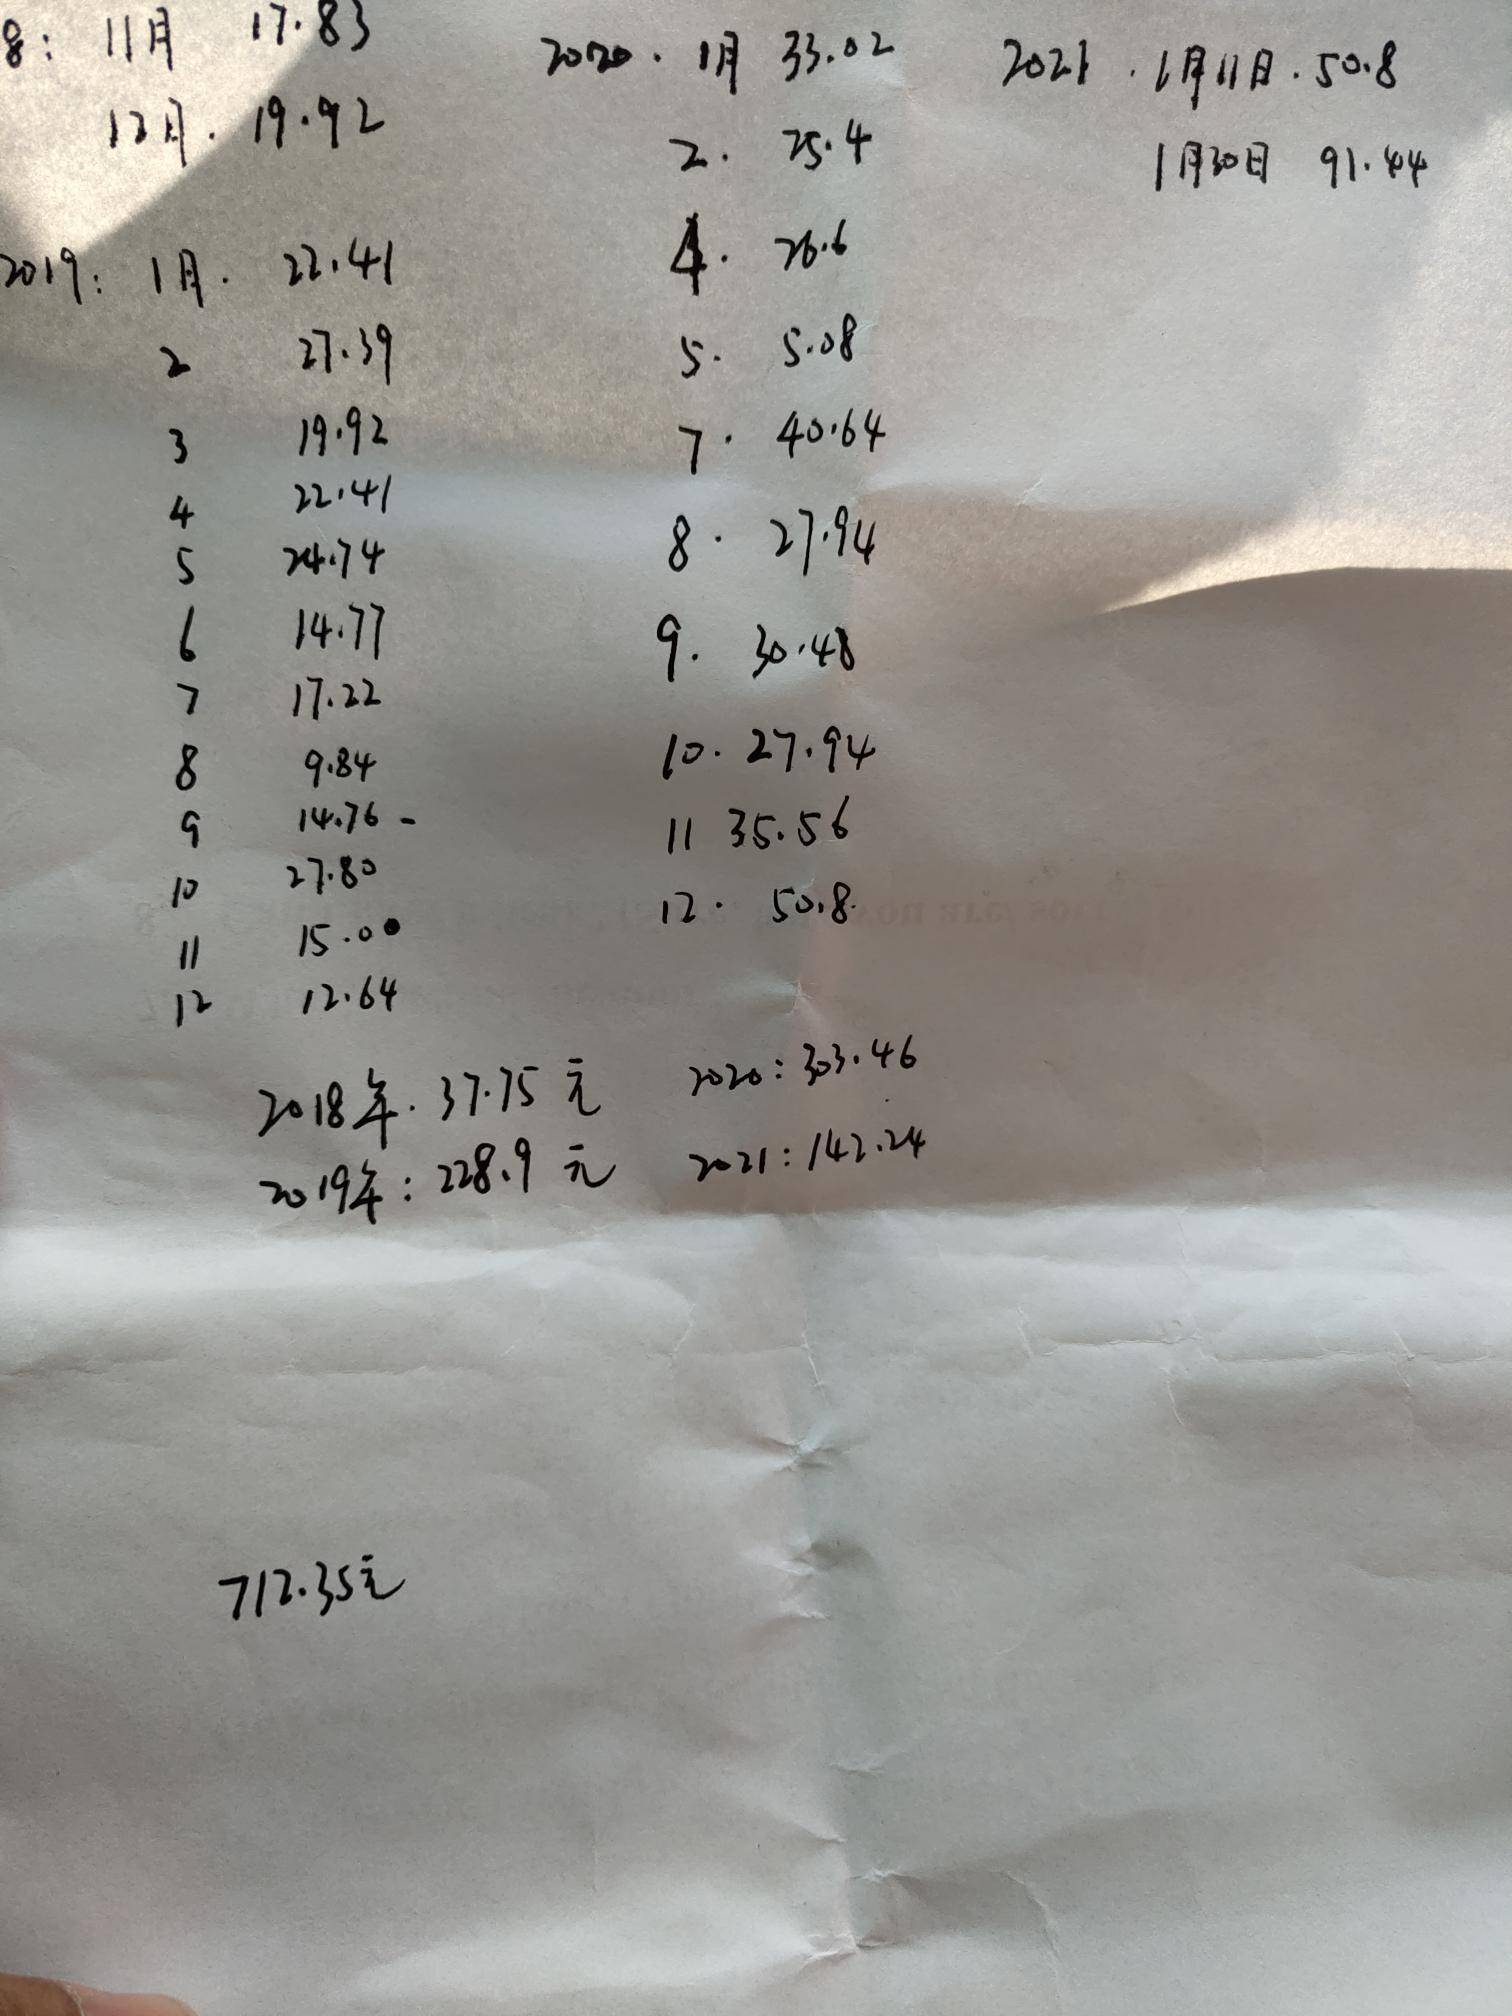 8: 11月 17.83
12月. 19.92
2019: 1月. 22.41
2 27.39
3 19.92
4 22.41
5 24.74
6 14.77
7 17.22
8 9.84
9 14.76 -
10 27.80
11 15.00
12 12.64
2020. 1月 33.02
2. 25.4
4. 26.6
5. 5.08
7. 40.64
8. 27.94
9. 30.48
10. 27.94
11 35.56
12. 50.8.
2021. 1月11日. 50.8
1月30日 91.44
2018年. 37.75元
2019年: 228.9元
2020: 303.46
2021: 142.24
712.35元